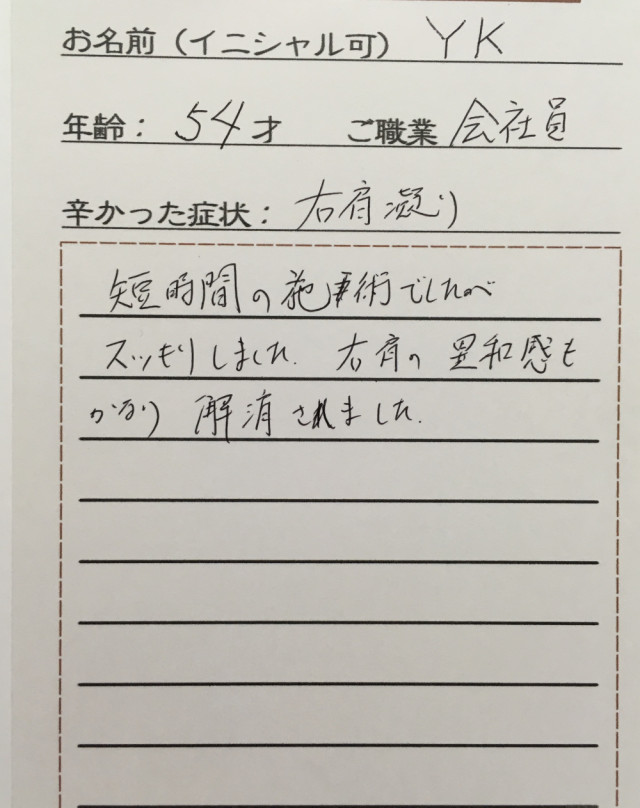 お名前（イニシャル可） YK
年齢： 54才 ご職業 会社員
辛かった症状： 右肩凝り
短時間の施術でしたが
スッキリしました. 右肩の異和感も
かなり 解消されました.